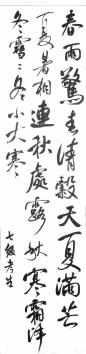 春雨驚春清穀天夏滿芒
夏暑相連秋處露秋寒霜降
冬雪〻冬小大寒
七級考生